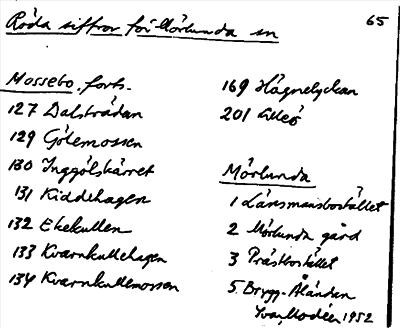 Röda siffror för Mörlunda sn
65
Mossebo. forts.
127 Dalsträdan
129 Gölemossen
130 Inggölskärret
131 Kiddehagen
132 Ekekullen
133 Kvarnkullehagen
134 Kvarnkullemossen
169 Hägnelyckan
201
Mörlunda
1 Länsmansbostället
2 Mörlunda gård
3 Prästbostället
5. Brygg-Åländan
Ivar Modéer 1952